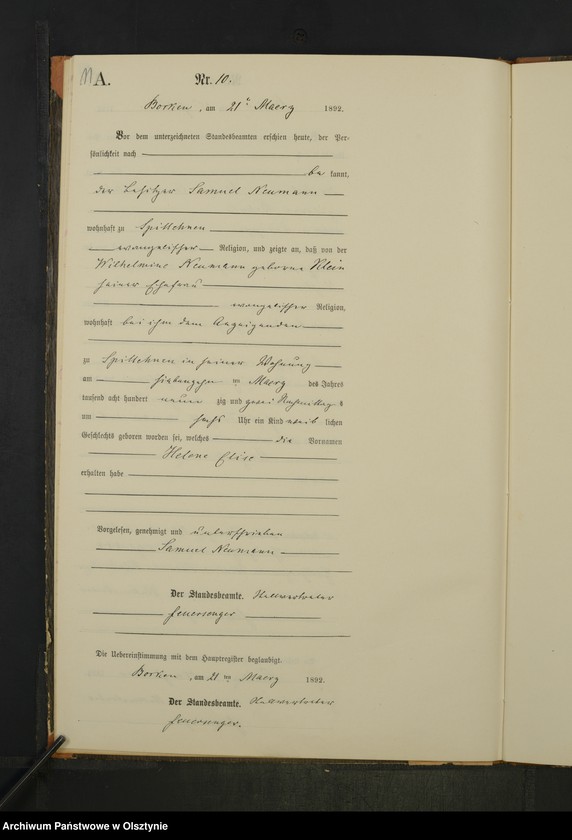 A.
Nr. 10.
Borken, am 21ten Maerz 1892.
Vor dem unterzeichneten Standesbeamten erschien heute, der Per-
sönlichkeit nach
be kannt,
der Besitzer Samuel Neumann
wohnhaft zu Spittehnen
evangelischer Religion, und zeigte an, daß von der
Wilhelmine Neumann geborne Klein
seiner Ehefrau
evangelischer Religion,
wohnhaft bei ihm dem Anzeigenden
zu Spittehnen in seiner Wohnung
am siebenzehn ten Maerz des Jahres
tausend acht hundert neun zig und zwei Nachmittags
um sechs Uhr ein Kind weib lichen
Geschlechts geboren worden sei, welches die Vornamen
Helene Elise
erhalten habe
Vorgelesen, genehmigt und unterschrieben
Samuel Neumann
Der Standesbeamte. Stellvertreter
Feuersenger
Die Uebereinstimmung mit dem Hauptregister beglaubigt.
Borken, am 21 ten Maerz 1892.
Der Standesbeamte. Stellvertreter
Feuersenger.
Archiwum Państwowe w Olsztynie